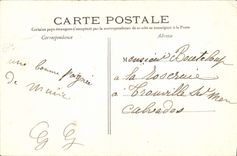 CARTE POSTALE
Certains pays étrangers n'acceptant pas la correspondance de ce côté se renseigner à la Poste
Correspondance
Adresse
une bonne poignée
de main
G G
Monsieur
à la
à Trouville sur Mer
Calvados